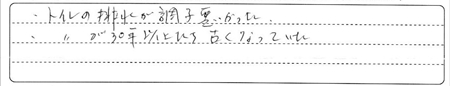 ・トイレの排水が調子悪かった.
・ 〃 が30年以上たち古くなっていた